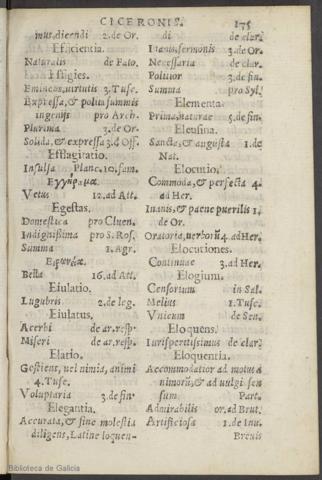 CICERONIS. 175
mus, dicendi 2.de Or.
Efficientia.
Naturalis de Fato.
Effigies.
Eminens, uirtutis 3.Tusc.
Expressa, & polita summis
ingenijs pro Arch.
Plurima 3.de Or.
Solida, & expressa 3.Off.
Efflagitatio.
Insulsa Planc.10.fam.
Vetus 12.ad Att.
Egestas.
Domestica pro Cluen.
Indignissima pro S. Ros.
Summa 1.Agr.
Bella 16.ad Att.
Eiulatio.
Lugubris 2.de leg.
Eiulatus.
Acerbi de ar.resp.
Miseri de ar.resp.
Elatio.
Gestiens, uel nimia, animi
4.Tusc.
Voluptaria 3.de fin.
Elegantia.
Accurata, & sine molestia
diligens, Latine loquen-
di de clar.
Inanis, sermonis 3.de Or.
Necessaria de clar.
Politior 3.de fin.
Summa pro Syl.
Elementa.
Prima, naturae 5.de fin.
Eleusina.
Sancta, & augusta 1.de
Nat.
Elocutio.
Commoda, & perfecta 4.
ad Her.
Inanis, & paene puerilis 1.
de Or.
Oratoria, uerborum 4.ad Her.
Elocutiones.
Continuae 3.ad Her.
Elogium.
Censorium in Sal.
Melius 1.Tusc.
Vnicum de Sen.
Eloquens.
Iurisperitissimus de clar.
Eloquentia.
Accommodatior ad motus a
nimorum, & ad uulgi sen
sum Part.
Admirabilis or.ad Brut.
Artificiosa 1.de Inu.
Breuis
Biblioteca de Galicia